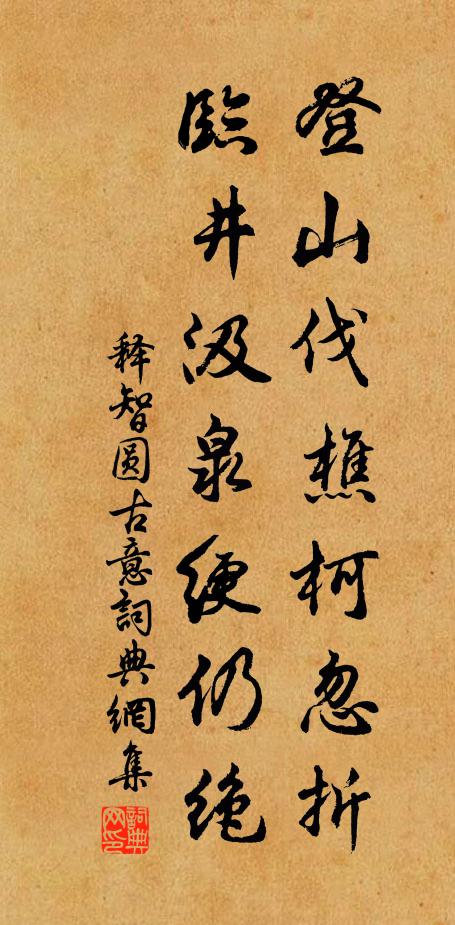 登山伐樵柯忽折
臨井汲泉绠仍绝
释智圆古意詞典網集
詞典網印